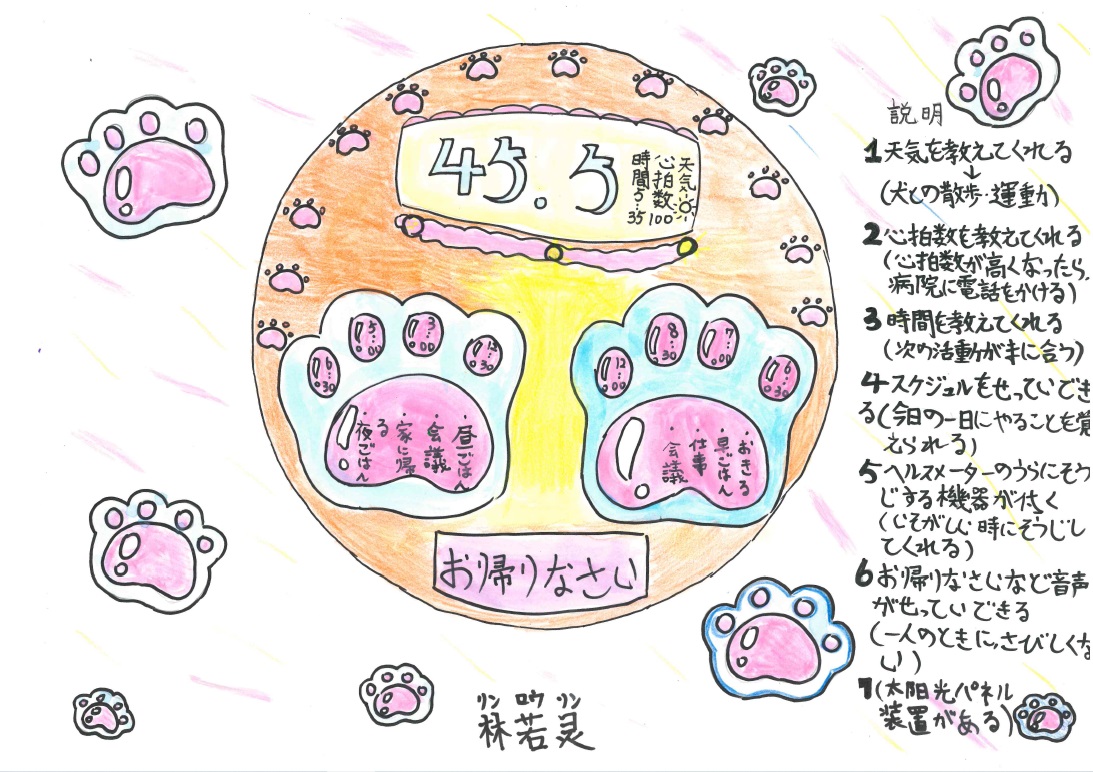 説明
1天気を教えてくれる
↓
(犬との散歩・運動)
2心拍数を教えてくれる
(心拍数が高くなったら、
病院に電話をかける)
3時間を教えてくれる
(次の活動がまに合う)
4スケジュルをせっていでき
る(今日の一日にやることを覚
えられる)
5ヘルスメーターのうらにそう
じする機器が付く
(いそがしい時にそうじし
てくれる)
6お帰りなさいなど音声
がせっていできる
(一人のときに、さびしくな
い)
7(太陽光パネル
装置がある)
45.5
天気
心拍数100
時間5:35
6:30
5:00
3:00
12:30
・昼ごはん
・会議
・家に帰
る
・夜ごはん
12:00
8:30
7:00
6:30
・おきる
・早ごはん
・仕事
・会議
お帰りなさい
リン ロウ リン
林若灵